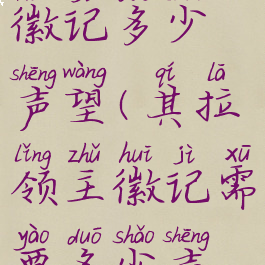 徽记多少
shēng wàng qí lā
声望(其拉
lǐng zhǔ huī jì xū
领主徽记需
yào duō shǎo shēng
要多少声